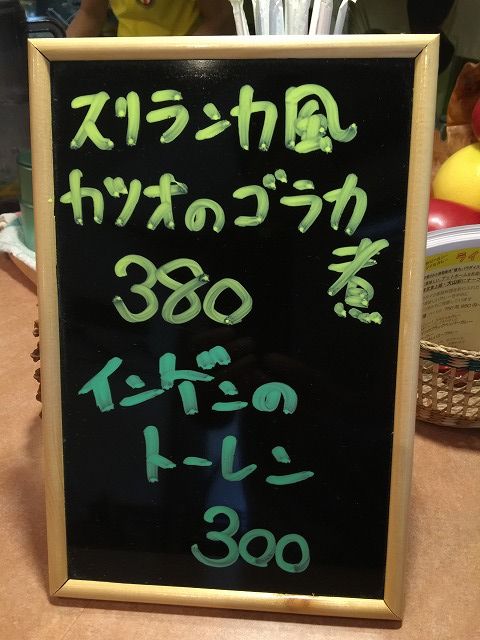 スリランカ風
カツオのゴラカ
煮
380
インゲンの
トーレン
300